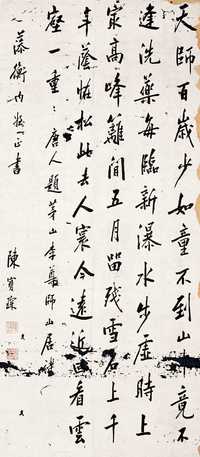 天師百歲少如童不到山中竟不
逢洗藥每臨新瀑水步虛時上
最高峰籬間五月留殘雪石上千
年蔭怪松此去人寰今遠近回看雲
壑一重〻唐人題茅山李尊師山居
衡內姪正書
陳寶琛